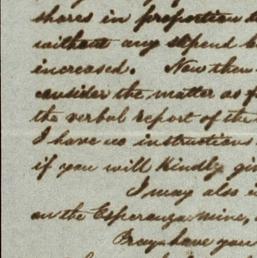 shares in proportion
without any stipend
increased. Now then
consider the matter as
the verbal report of the
I have no instructions
if you will kindly
I may also
on the Esperanza mine,
Pray have you